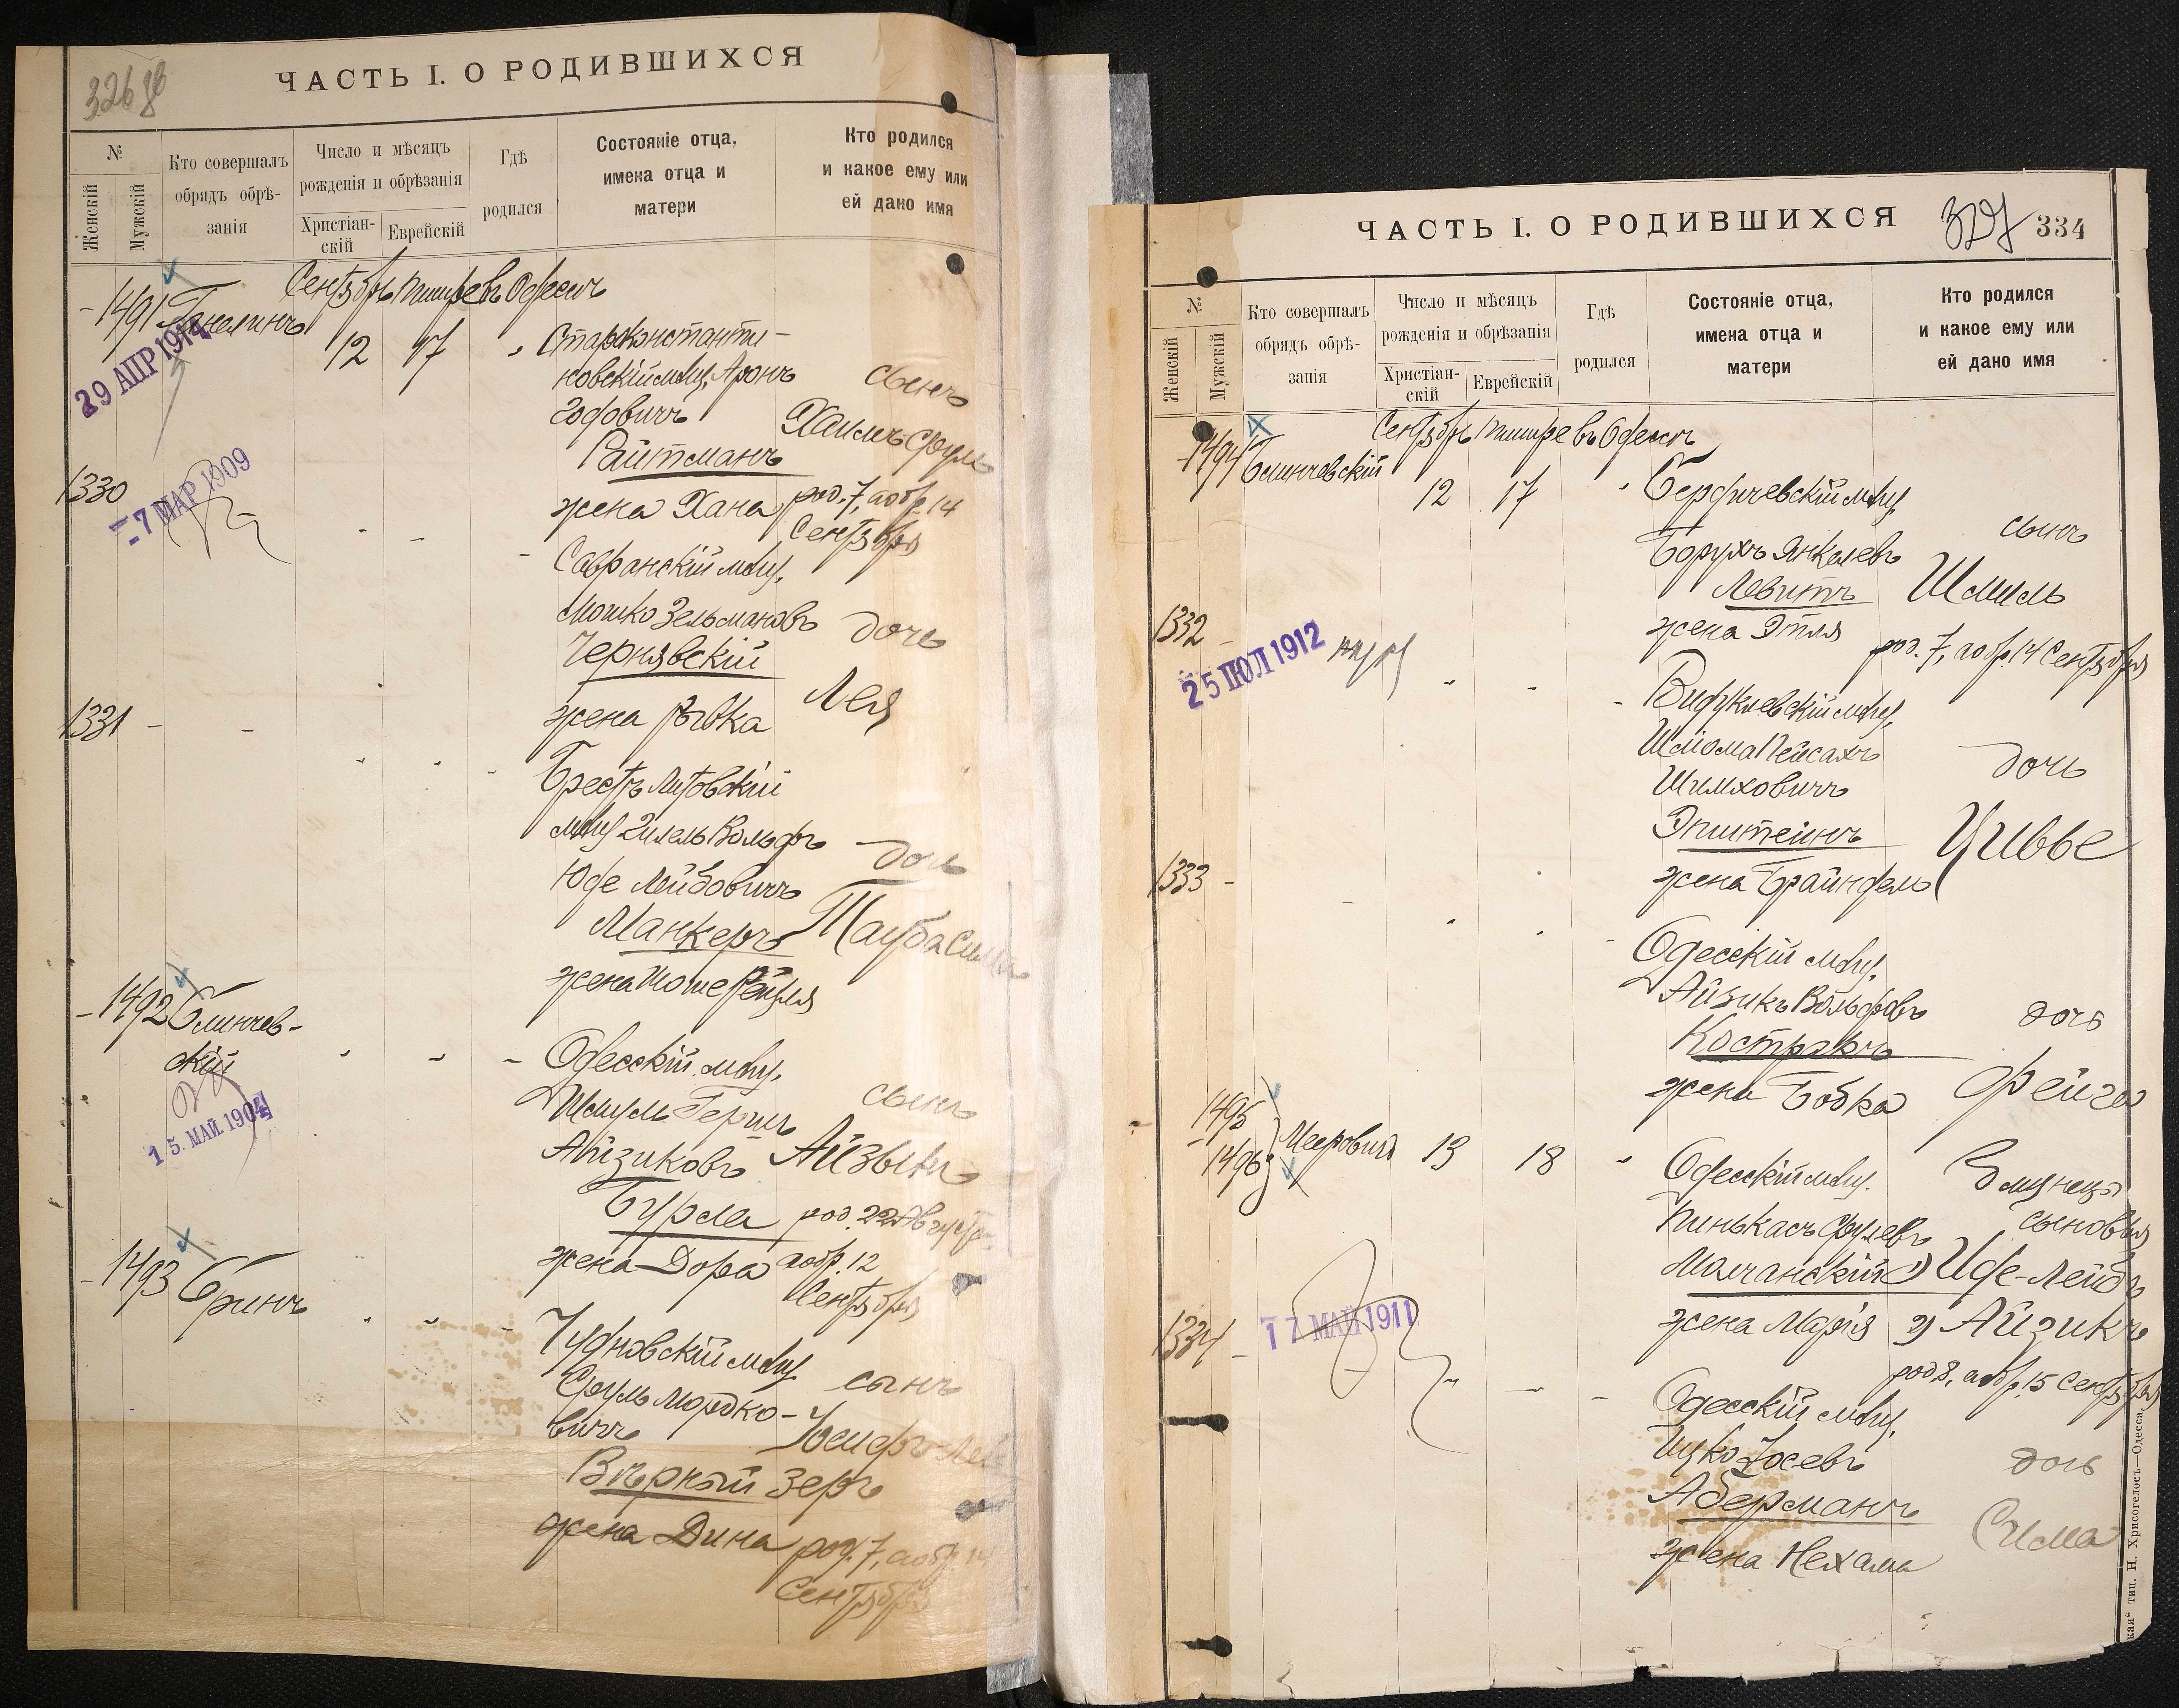 326 об
ЧАСТЬ I. О РОДИВШИХСЯ
№
Женскій
Мужскій
Кто совершалъ
обрядъ обрѣ-
занія
Число и мѣсяцъ
рожденія и обрѣзанія
Христіан-
скій
Еврейскій
Гдѣ
родился
Состояніе отца,
имена отца и
матери
Кто родился
и какое ему или
ей дано имя
Сентябрь Тишре въ Одессѣ
1491
12 17
29 АПР 1914
Староконстанти-
новскій мѣщ. Аронъ
Райтманъ
жена Хана
сынъ
Хаимъ Сруль
род. 7, а обр. 14
Сентября
1330
7 МАР 1909
Савранскій мѣщ.
Мошко Зельмановъ
Чернявскій
жена Рывка
дочь
Лея
1331
Брестъ Литовскій
мѣщ Гилель Вольфъ
Юде Лейбовичъ
Манкеръ
жена Шоше Рейзля
дочь
Тауба Сима
1492 Блинчев-
скій
15. МАЙ 1904
Одесскій мѣщ.
Шмуль Герш
Айзиковъ
Бурла
жена Дора
сынъ
Айзыкъ
род. 22 Августа
а обр. 12
Сентября
1493 Гринъ
Чудновскій мѣщ.
Сруль Мордко-
вичъ
Вѣрный
жена Дина
сынъ
Іосифъ
Зеръ
род. 7, а обр 14
Сентября
ЧАСТЬ I. О РОДИВШИХСЯ
327 334
№
Женскій
Мужскій
Кто совершалъ
обрядъ обрѣ-
занія
Число и мѣсяцъ
рожденія и обрѣзанія
Христіан-
скій
Еврейскій
Гдѣ
родился
Состояніе отца,
имена отца и
матери
Кто родился
и какое ему или
ей дано имя
Сентябрь Тишре въ Одессѣ
1494 Блинчевскій
12 17
Бердичевскій мѣщ.
Борухъ Янкелевъ
Левитъ
жена Этля
сынъ
Шмиль
род. 7, а обр. 14 Сентября
1332
25 ІЮЛ 1912
Видуклевскій мѣщ.
Шлиома Пейсахъ
Шимховичъ
Эпштейнъ
жена Брайндель
дочь
Цивье
1333
Одесскій мѣщ.
Айзикъ Вольфовъ
Костракъ
жена Бобка
дочь
Фейга
1495
1496
Мееровичъ 13 18
Одесскій мѣщ.
Пинькасъ Срулевъ
Молчанскій
жена Марія
Близнецы
сыновья
1) Иде-Лейбъ
2) Айзикъ
род 8, а обр. 15 Сентября
1334
17 МАЙ 1911
Одесскій мѣщ.
Ицко Іосевъ
Аберманъ
жена Нехама
дочь
Сима
кая“ тип. Н. Хрисогелосъ—Одесса.